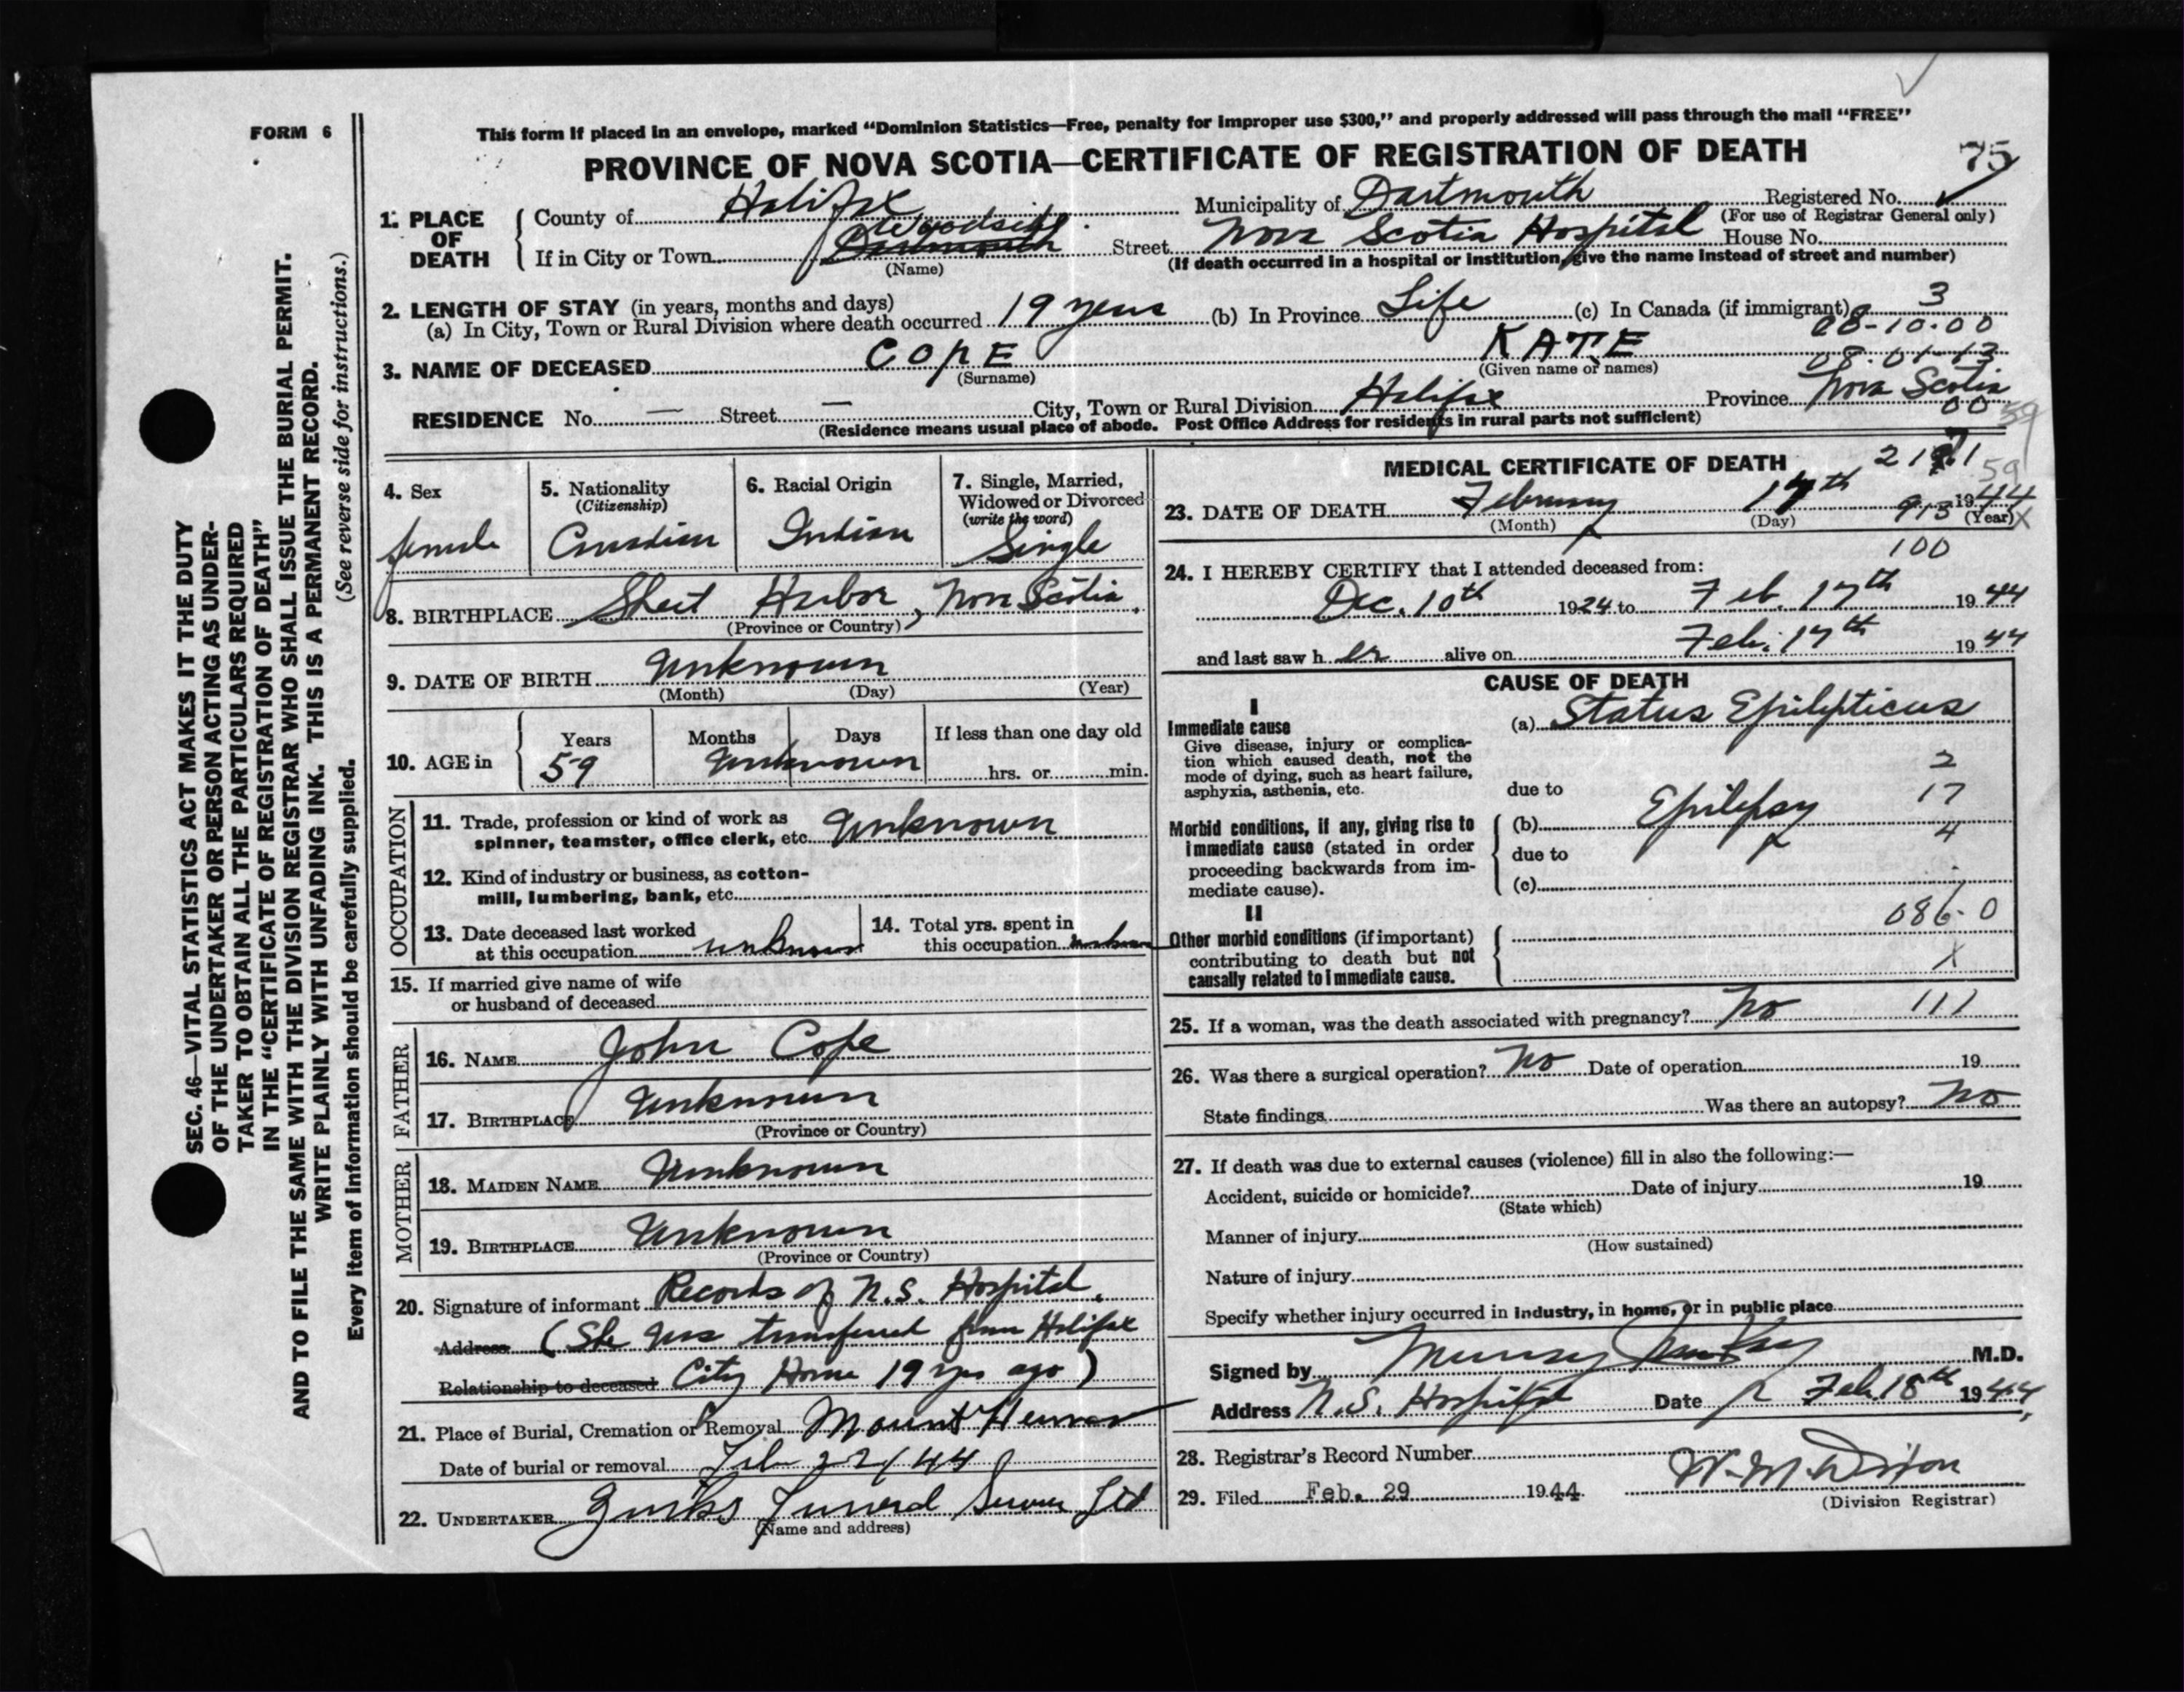 FORM 6
This form if placed in an envelope, marked “Dominion Statistics—Free, penalty for improper use $300,” and properly addressed will pass through the mail “FREE”
PROVINCE OF NOVA SCOTIA—CERTIFICATE OF REGISTRATION OF DEATH
75
SEC. 46—VITAL STATISTICS ACT MAKES IT THE DUTY
OF THE UNDERTAKER OR PERSON ACTING AS UNDER-
TAKER TO OBTAIN ALL THE PARTICULARS REQUIRED
IN THE “CERTIFICATE OF REGISTRATION OF DEATH”
AND TO FILE THE SAME WITH THE DIVISION REGISTRAR WHO SHALL ISSUE THE BURIAL PERMIT.
WRITE PLAINLY WITH UNFADING INK. THIS IS A PERMANENT RECORD.
Every item of information should be carefully supplied. (See reverse side for instructions.)
1. PLACE OF DEATH
County of Halifax Municipality of Dartmouth Registered No.
(For use of Registrar General only)
If in City or Town Woodside Dartmouth Street Nova Scotia Hospital House No.
(Name) (If death occurred in a hospital or institution, give the name instead of street and number)
2. LENGTH OF STAY (in years, months and days)
(a) In City, Town or Rural Division where death occurred 19 years (b) In Province Life (c) In Canada (if immigrant) 3
08-10-00
3. NAME OF DECEASED COPE KATE
(Surname) (Given name or names)
08-01-13
RESIDENCE No. — Street — City, Town or Rural Division Halifax Province Nova Scotia
00 59
(Residence means usual place of abode. Post Office Address for residents in rural parts not sufficient)
4. Sex
female
5. Nationality
(Citizenship)
Canadian
6. Racial Origin
Indian
7. Single, Married,
Widowed or Divorced
(write the word)
Single
8. BIRTHPLACE Sheet Harbor, Nova Scotia.
(Province or Country)
9. DATE OF BIRTH Unknown
(Month) (Day) (Year)
10. AGE in
Years Months Days If less than one day old
59 Unknown hrs. or min.
OCCUPATION
11. Trade, profession or kind of work as
spinner, teamster, office clerk, etc. Unknown
12. Kind of industry or business, as cotton-
mill, lumbering, bank, etc.
13. Date deceased last worked
at this occupation unknown
14. Total yrs. spent in
this occupation unknown
15. If married give name of wife
or husband of deceased
FATHER
16. NAME John Cope
17. BIRTHPLACE Unknown
(Province or Country)
MOTHER
18. MAIDEN NAME Unknown
19. BIRTHPLACE Unknown
(Province or Country)
20. Signature of informant Records of N.S. Hospital.
Address (She was transferred from Halifax
Relationship to deceased City Home 19 yrs ago)
21. Place of Burial, Cremation or Removal Mount Hermon
Date of burial or removal Feb 22/44
22. UNDERTAKER Zinks Funeral Service Ltd
(Name and address)
MEDICAL CERTIFICATE OF DEATH
59
23. DATE OF DEATH February 17th 1944
(Month) (Day) (Year)
913 X
100
24. I HEREBY CERTIFY that I attended deceased from:
Dec. 10th 1924 to Feb. 17th 1944
and last saw her alive on Feb. 17th 1944
CAUSE OF DEATH
I
Immediate cause
Give disease, injury or complica-
tion which caused death, not the
mode of dying, such as heart failure,
asphyxia, asthenia, etc.
(a) Status Epilepticus
2
due to
17
Morbid conditions, if any, giving rise to
immediate cause (stated in order
proceeding backwards from im-
mediate cause).
(b) Epilepsy
4
due to
(c)
II
086-0
Other morbid conditions (if important)
contributing to death but not
causally related to immediate cause.
X
25. If a woman, was the death associated with pregnancy? No 111
26. Was there a surgical operation? No Date of operation 19
State findings Was there an autopsy? No
27. If death was due to external causes (violence) fill in also the following:—
Accident, suicide or homicide? Date of injury 19
(State which)
Manner of injury
(How sustained)
Nature of injury
Specify whether injury occurred in industry, in home, or in public place
Signed by Murray M.D.
Address N.S. Hospital Date Feb. 18th 1944
28. Registrar’s Record Number
29. Filed Feb. 29 1944. W. M. Dixon
(Division Registrar)